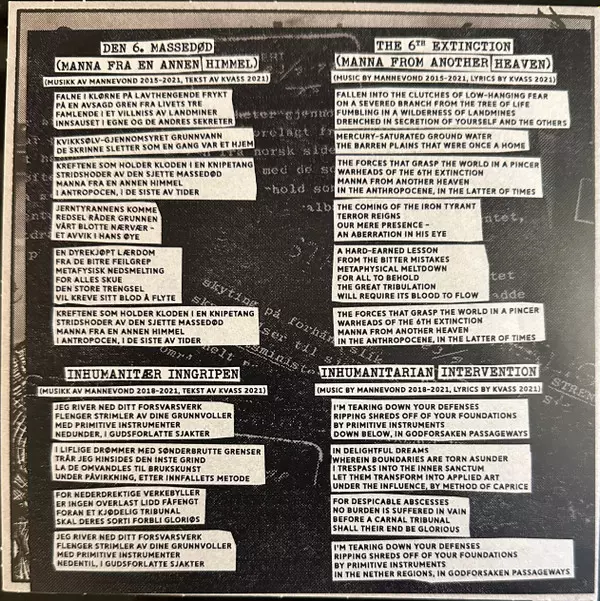 DEN 6. MASSEDØD
(MANNA FRA EN ANNEN HIMMEL)
(MUSIKK AV MANNEVOND 2015-2021, TEKST AV KVASS 2021)
FALNE I KLØRNE PÅ LAVTHENGENDE FRYKT
PÅ EN AVSAGD GREN FRA LIVETS TRE
FAMLENDE I ET VILLNISS AV LANDMINER
INNSAUSET I EGNE OG DE ANDRES SEKRETER
KVIKKSØLV-GJENNOMSYRET GRUNNVANN
DE SKRINNE SLETTER SOM EN GANG VAR ET HJEM
KREFTENE SOM HOLDER KLODEN I EN KNIPETANG
STRIDSHODER AV DEN SJETTE MASSEDØD
MANNA FRA EN ANNEN HIMMEL
I ANTROPOCEN, I DE SISTE AV TIDER
JERNTYRANNENS KOMME
REDSEL RÅDER GRUNNEN
VÅRT BLOTTE NÆRVÆR -
ET AVVIK I HANS ØYE
EN DYREKJØPT LÆRDOM
FRA DE BITRE FEILGREP
METAFYSISK NEDSMELTING
FOR ALLES SKUE
DEN STORE TRENGSEL
VIL KREVE SITT BLOD Å FLYTE
KREFTENE SOM HOLDER KLODEN I EN KNIPETANG
STRIDSHODER AV DEN SJETTE MASSEDØD
MANNA FRA EN ANNEN HIMMEL
I ANTROPOCEN, I DE SISTE AV TIDER
INHUMANITÆR INNGRIPEN
(MUSIKK AV MANNEVOND 2018-2021, TEKST AV KVASS 2021)
JEG RIVER NED DITT FORSVARSVERK
FLENGER STRIMLER AV DINE GRUNNVOLLER
MED PRIMITIVE INSTRUMENTER
NEDUNDER, I GUDSFORLATTE SJAKTER
I LIFLIGE DRØMMER MED SØNDERBRUTTE GRENSER
TRÅR JEG HINSIDES DEN INSTE GRIND
LA DE OMVANDLES TIL BRUKSKUNST
UNDER PÅVIRKNING, ETTER INNFALLETS METODE
FOR NEDERDREKTIGE VERKEBYLLER
ER INGEN OVERLAST LIDD FÅFENGT
FORAN ET KJØDELIG TRIBUNAL
SKAL DERES SORTI FORBLI GLORIØS
JEG RIVER NED DITT FORSVARSVERK
FLENGER STRIMLER AV DINE GRUNNVOLLER
MED PRIMITIVE INSTRUMENTER
NEDENTIL, I GUDSFORLATTE SJAKTER
THE 6TH EXTINCTION
(MANNA FROM ANOTHER HEAVEN)
(MUSIC BY MANNEVOND 2015-2021, LYRICS BY KVASS 2021)
FALLEN INTO THE CLUTCHES OF LOW-HANGING FEAR
ON A SEVERED BRANCH FROM THE TREE OF LIFE
FUMBLING IN A WILDERNESS OF LANDMINES
DRENCHED IN SECRETION OF YOURSELF AND THE OTHERS
MERCURY-SATURATED GROUND WATER
THE BARREN PLAINS THAT WERE ONCE A HOME
THE FORCES THAT GRASP THE WORLD IN A PINCER
WARHEADS OF THE 6TH EXTINCTION
MANNA FROM ANOTHER HEAVEN
IN THE ANTHROPOCENE, IN THE LATTER OF TIMES
THE COMING OF THE IRON TYRANT
TERROR REIGNS
OUR MERE PRESENCE -
AN ABERRATION IN HIS EYE
A HARD-EARNED LESSON
FROM THE BITTER MISTAKES
METAPHYSICAL MELTDOWN
FOR ALL TO BEHOLD
THE GREAT TRIBULATION
WILL REQUIRE ITS BLOOD TO FLOW
THE FORCES THAT GRASP THE WORLD IN A PINCER
WARHEADS OF THE 6TH EXTINCTION
MANNA FROM ANOTHER HEAVEN
IN THE ANTHROPOCENE, IN THE LATTER OF TIMES
INHUMANITARIAN INTERVENTION
(MUSIC BY MANNEVOND 2018-2021, LYRICS BY KVASS 2021)
I'M TEARING DOWN YOUR DEFENSES
RIPPING SHREDS OFF OF YOUR FOUNDATIONS
BY PRIMITIVE INSTRUMENTS
DOWN BELOW, IN GODFORSAKEN PASSAGEWAYS
IN DELIGHTFUL DREAMS
WHEREIN BOUNDARIES ARE TORN ASUNDER
I TRESPASS INTO THE INNER SANCTUM
LET THEM TRANSFORM INTO APPLIED ART
UNDER THE INFLUENCE, BY METHOD OF CAPRICE
FOR DESPICABLE ABSCESSES
NO BURDEN IS SUFFERED IN VAIN
BEFORE A CARNAL TRIBUNAL
SHALL THEIR END BE GLORIOUS
I'M TEARING DOWN YOUR DEFENSES
RIPPING SHREDS OFF OF YOUR FOUNDATIONS
BY PRIMITIVE INSTRUMENTS
IN THE NETHER REGIONS, IN GODFORSAKEN PASSAGEWAYS
skyting på forhånd